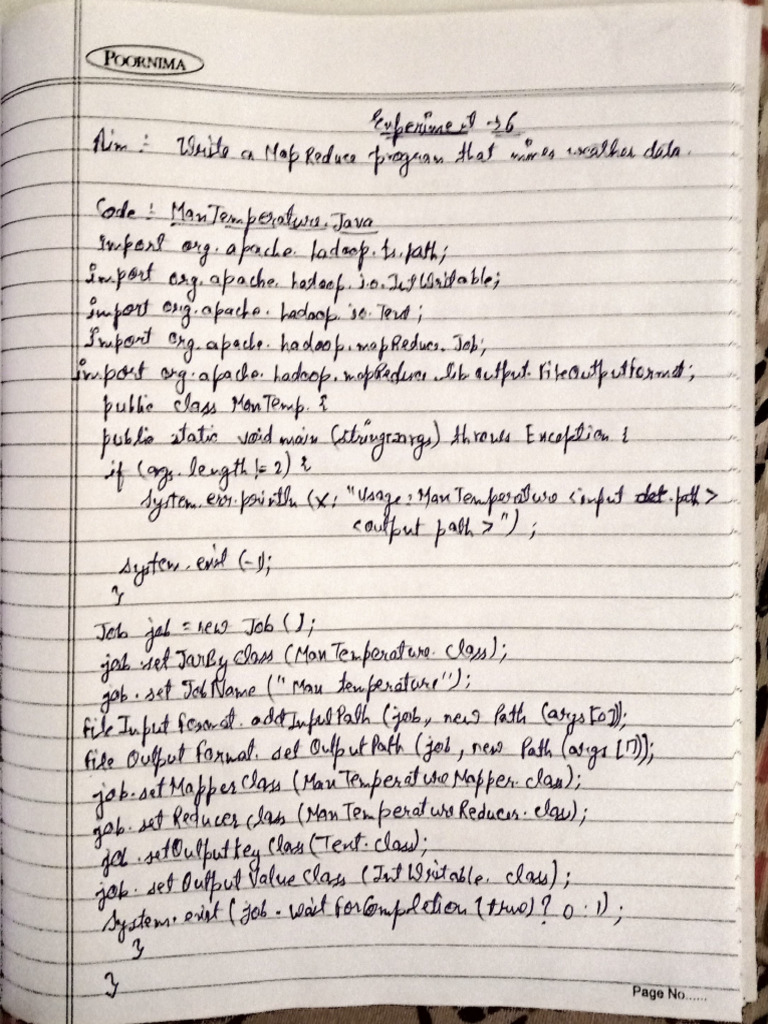 POORNIMA
Experiment → 6
Aim :- Write a MapReduce program that mines weather data.
Code : MaxTemperature.Java
Import org.apache.hadoop.fs.path;
import org.apache.hadoop.io.IntWritable;
import org.apache.hadoop.io.Text;
Import org.apache.hadoop.mapReduce.Job;
import org.apache.hadoop.mapReduce.lib output.FileOutputformat;
public class MaxTemp. {
public static void main (string args) throws Exception {
if (args.length != 2) {
System.err.println ( "Usage: MaxTemperature <input path>
<output path>") ;
System.exit (-1);
}
Job job = new Job ( );
job.set JarBy Class (Max Temperature. Class);
job.set JobName (" Max temperature");
file Input format. addInputPath (job, new Path (args [0]);
file Output Format. set OutputPath (job, new Path (args [1]);
job.setMapperClass (MaxTemperatureMapper.class);
job.set Reducer class (MaxTemperatureReducer.class);
job.setOutputKey Class (Text.class);
job.set Output Value Class (IntWritable. class);
System.exit (job.wait ForCompletion (true) ? 0 : 1) ;
}
}
Page No......